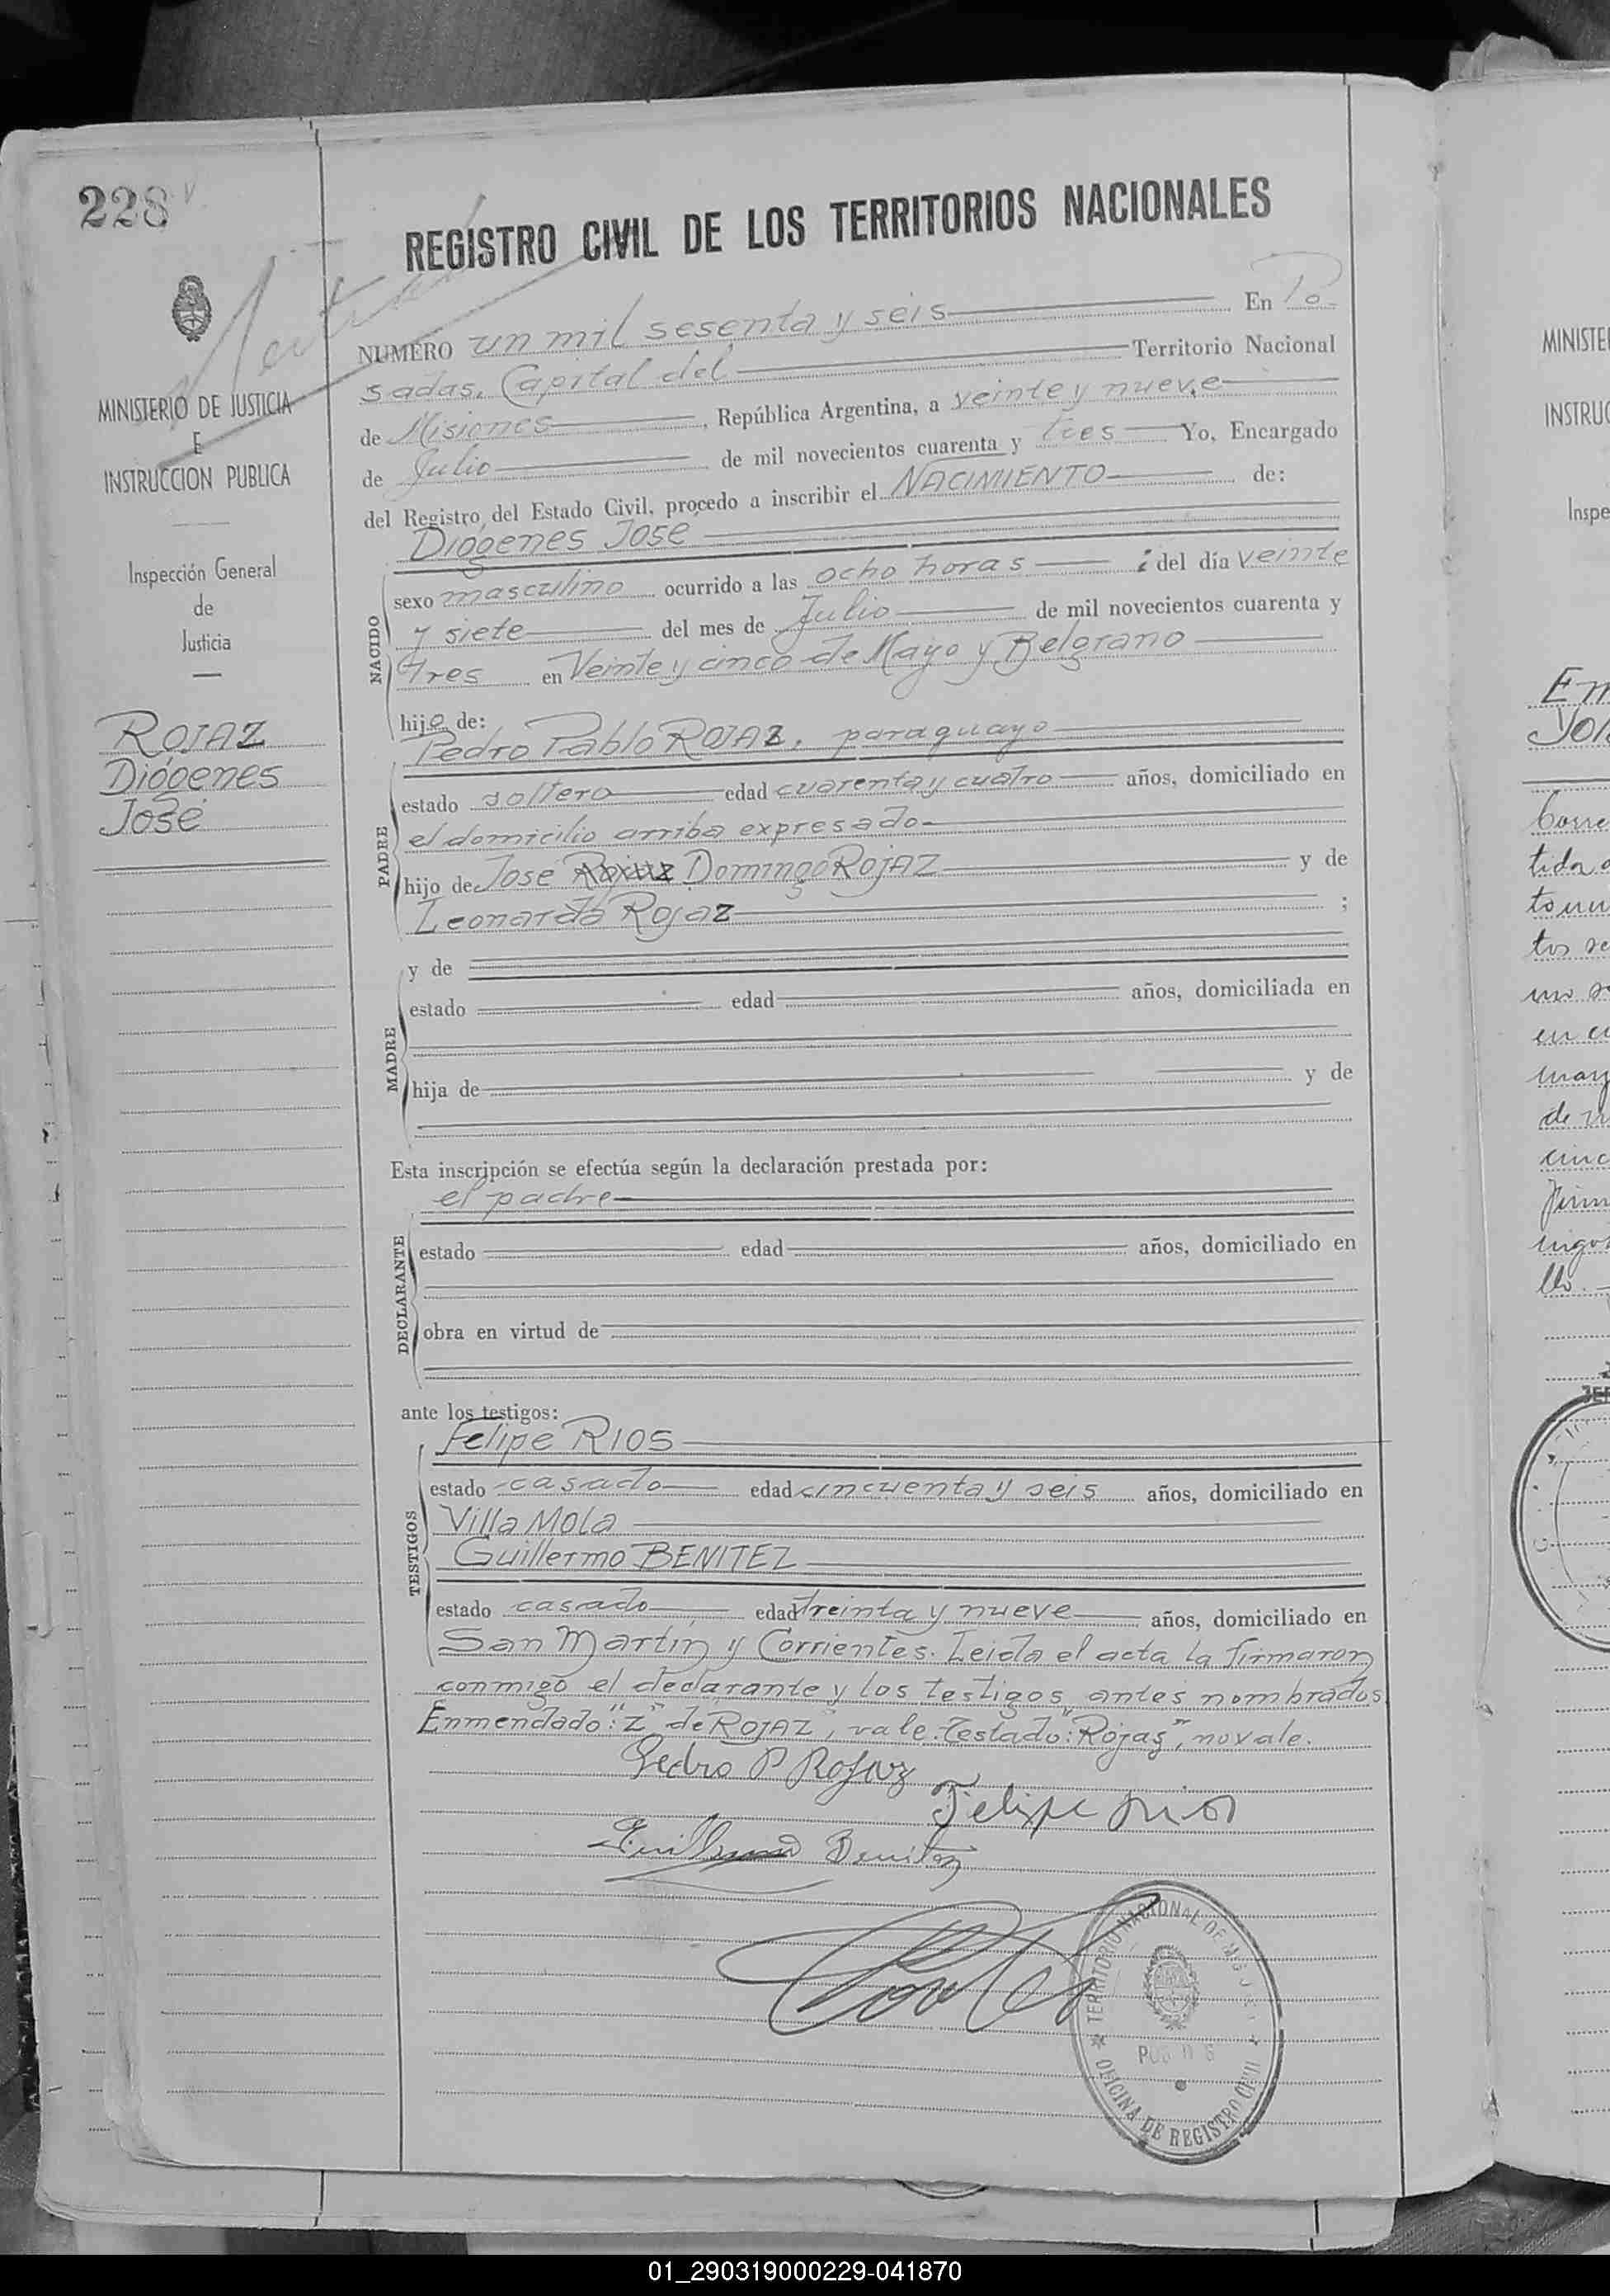 228
REGISTRO CIVIL DE LOS TERRITORIOS NACIONALES
MINISTERIO DE JUSTICIA
E
INSTRUCCION PUBLICA
Inspección General
de
Justicia
ROJAZ
Diógenes
José
NUMERO un mil sesenta y seis En Po-
sadas, Capital del Territorio Nacional
de Misiones, República Argentina, a veinte y nueve
de Julio de mil novecientos cuarenta y tres Yo, Encargado
del Registro del Estado Civil, procedo a inscribir el NACIMIENTO de:
Diógenes José
NACIDO
sexo masculino ocurrido a las ocho horas del día veinte
y siete del mes de Julio de mil novecientos cuarenta y
tres en Veinte y cinco de Mayo y Belgrano
hijo de:
Pedro Pablo ROJAZ, paraguayo
PADRE
estado soltero edad cuarenta y cuatro años, domiciliado en
el domicilio arriba expresado
hijo de Jose Domingo ROJAZ y de
Leonarda Rojaz ;
y de
MADRE
estado edad años, domiciliada en
hija de y de
Esta inscripción se efectúa según la declaración prestada por:
el padre
DECLARANTE
estado edad años, domiciliado en
obra en virtud de
ante los testigos:
Felipe RIOS
TESTIGOS
estado casado edad cincuenta y seis años, domiciliado en
Villa Mola
Guillermo BENITEZ
estado casado edad treinta y nueve años, domiciliado en
San Martín y Corrientes. Leida el acta la firmaron
conmigo el declarante y los testigos antes nombrados.
Enmendado: "Z" de ROJAZ", vale. Testado: "Rojas", no vale.
Pedro P Rojaz
Felipe Rios
Guillermo Benitez
TERRITORIO NACIONAL DE MISIONES
OFICINA DE REGISTRO CIVIL
MINISTE
INSTRUC
Inspe
tida
01_290319000229-041870